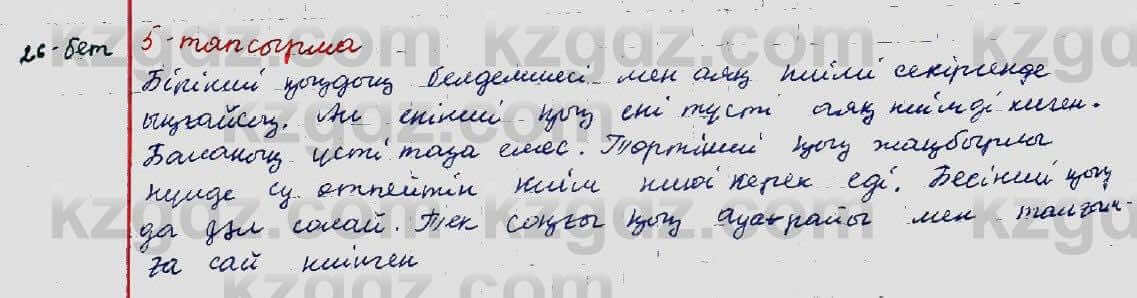 26-бет 5-тапсырма
Бірінші қыздың белдемшесі мен аяқ киімі секіргенде
ыңғайсыз. Ал екінші қыз екі түсті аяқ киімді киген.
Баланың үсті таза емес. Төртінші қыз жаңбырлы
күнде су өтпейтін киім киюі керек еді. Бесінші қыз
да дәл солай. Тек соңғы қыз ауа-райы мен талғам-
ға сай киінген